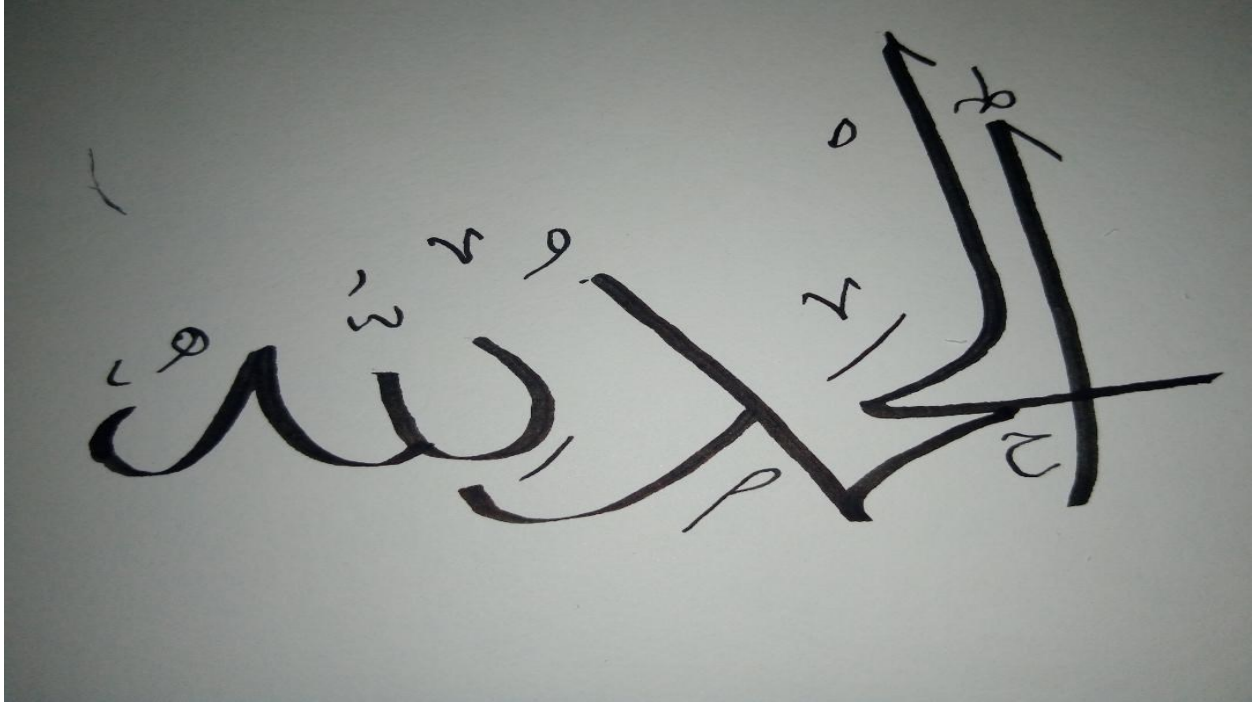 الحمدُ لِلّٰه